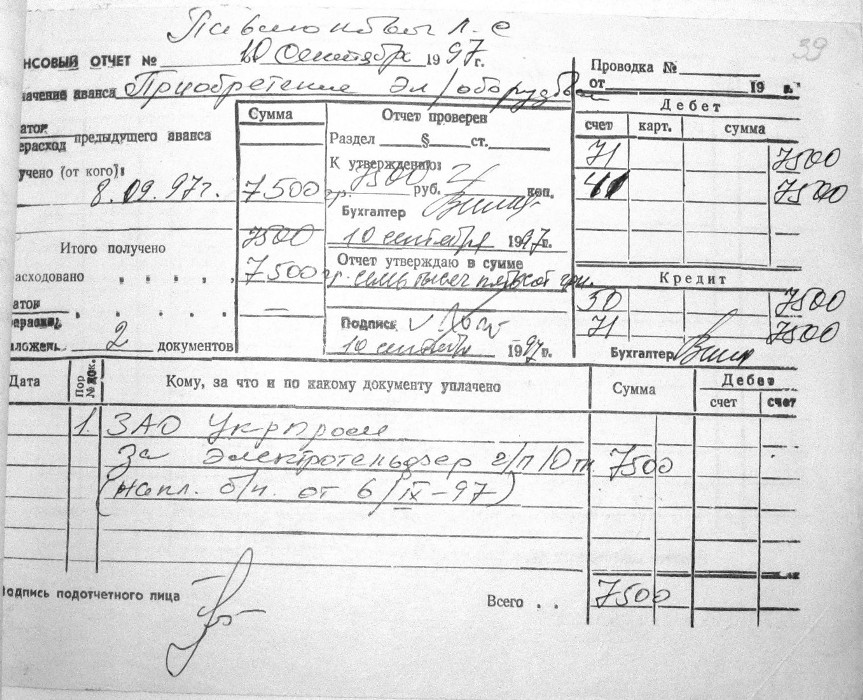 Л. С
39
НСОВЫЙ ОТЧЕТ № 10 сентября 1997г.
Проводка №
от 19 г.
начение аванса Приобретение Эл/оборудован
Дебет
счет карт. сумма
71 7500
41 7500
Сумма
Отчет проверен
Раздел § ст.
К утверждению:
7500 руб. коп.
Бухгалтер
10 сентября 1997г.
Отчет утверждаю в сумме
семь тысяч пятьсот грн.
Подпись
10 сентября 1997г.
таток предыдущего аванса
ерасход
учено (от кого):
8.09.97г. 7500 гр.
Итого получено 7500
расходовано 7500 гр.
таток —
ерасход
иложено 2 документов
Кредит
50 7500
71 7500
Бухгалтер
Дата
Пор. № док.
Кому, за что и по какому документу уплачено
Сумма
Дебет
счет счет
1. ЗАО Укрпром
за Электротельфер г/п 10 тн. 7500
(накл. б/н. от 6/IX-97)
Подпись подотчетного лица
Всего . . 7500